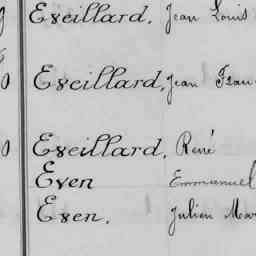 Eveillard, Jean Louis
Eveillard, Jean Fran
Eveillard, René
Even Emmanuel
Even, Julien Mar